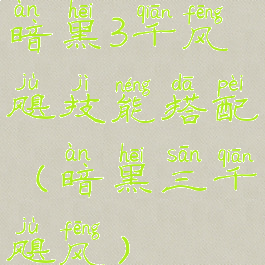 àn hēi qiān fēng
暗黑3千风
jù jì néng dā pèi
飓技能搭配
àn hēi sān qiān
（暗黑三千
jù fēng
飓风）